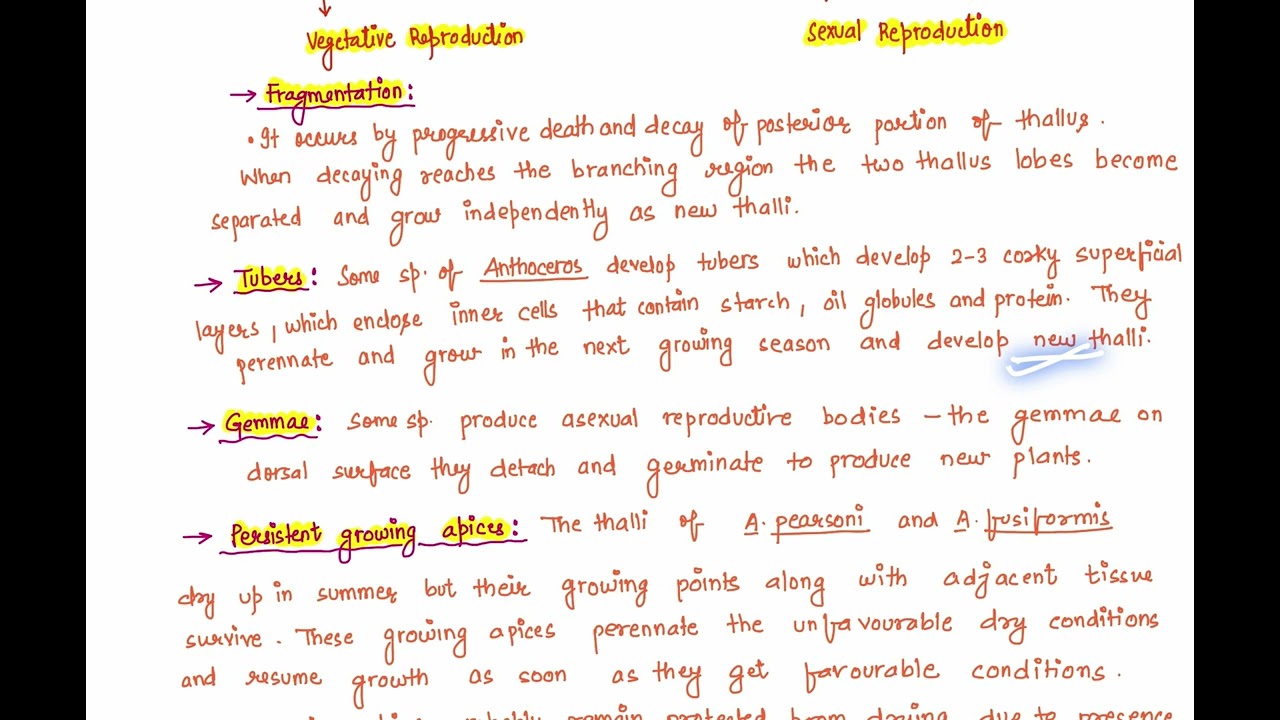 Vegetative Reproduction
Sexual Reproduction
→ Fragmentation:
• It occurs by progressive death and decay of posterior portion of thallus.
When decaying reaches the branching region the two thallus lobes become
separated and grow independently as new thalli.
→ Tubers: Some sp. of Anthoceros develop tubers which develop 2-3 corky superficial
layers, which enclose inner cells that contain starch, oil globules and protein. They
perennate and grow in the next growing season and develop new thalli.
→ Gemmae: Some sp. produce asexual reproductive bodies – the gemmae on
dorsal surface they detach and germinate to produce new plants.
→ Persistent growing apices: The thalli of A. pearsoni and A. fusiformis
dry up in summer but their growing points along with adjacent tissue
survive. These growing apices perennate the unfavourable dry conditions
and resume growth as soon as they get favourable conditions.
remain protected from drying due to presence